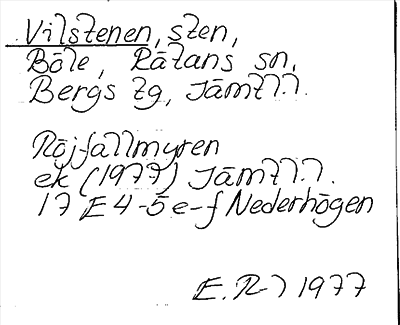 Vilstenen, sten,
Böle, Rätans sn,
Bergs tg, Jämtl.
Röjfallmyren
ek (1977) Jämtl.
17 E 4-5 e-f Nederhögen
E. R-l 1977